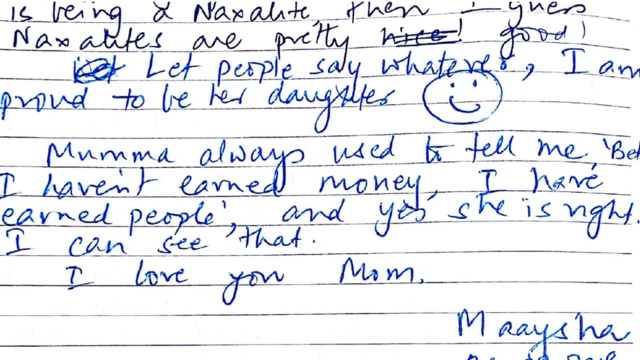 is being a Naxalite, then I guess
Naxalites are pretty nice! good!
Let people say whatever, I am
proud to be her daughter
Mumma always used to tell me, 'Bet
I haven't earned money, I have
earned people', and yes she is right.
I can see that.
I love you Mom.
Maaysha